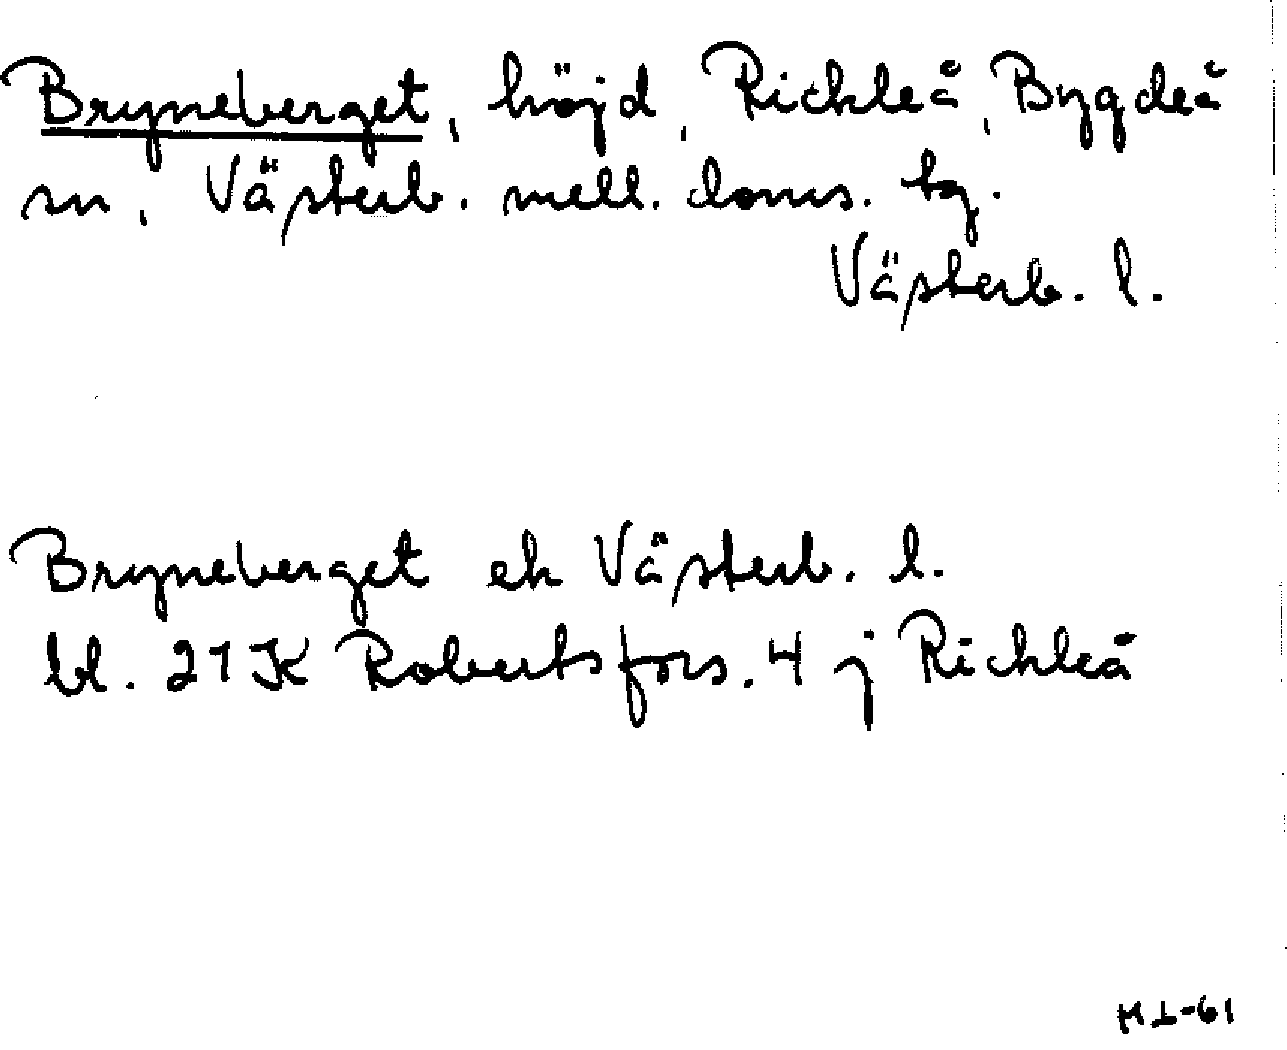 Bryneberget, höjd, Rickleå, Bygdeå
sn, Västerb. mell. doms. tg.
Västerb. l.
Bryneberget ek Västerb. l.
bl. 21 K Robertsfors. 4 j Rickleå